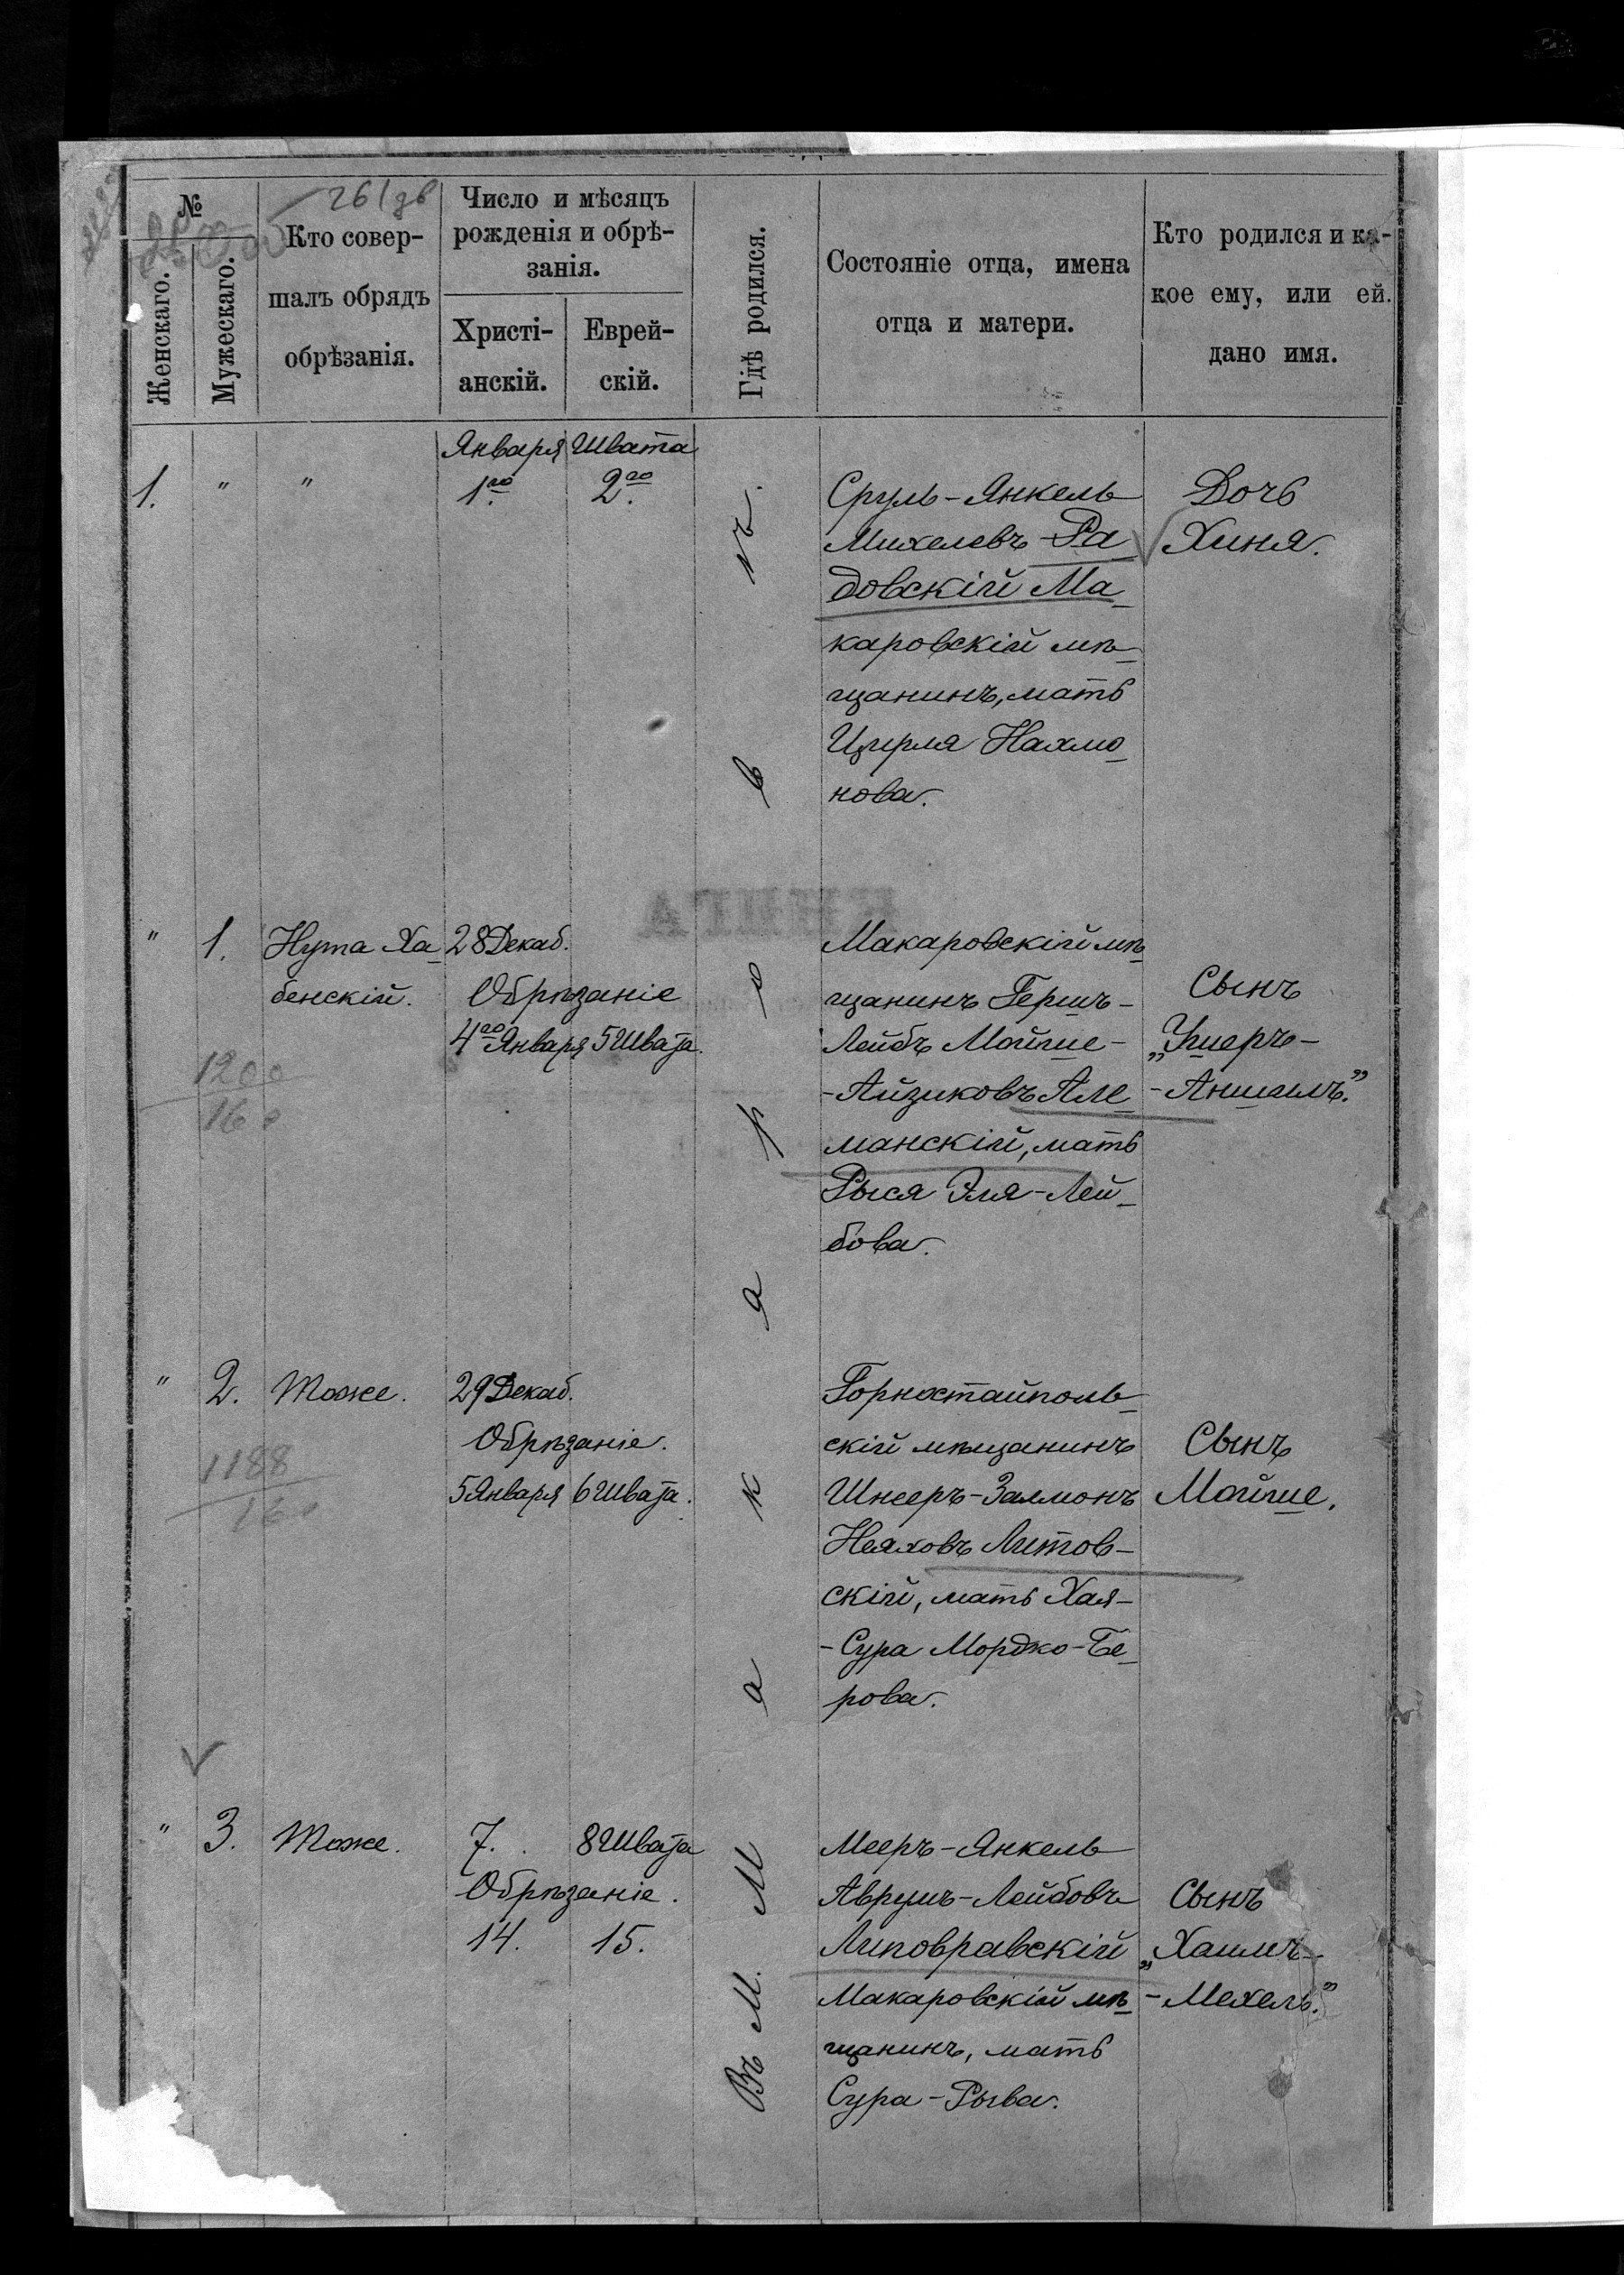 26/дв
№
Женскаго.
Мужескаго.
Кто совер-
шалъ обрядъ
обрѣзанія.
Число и мѣсяцъ
рожденія и обрѣ-
занія.
Христі-
анскій.
Еврей-
скій.
Гдѣ родился.
Состояніе отца, имена
отца и матери.
Кто родился и ка-
кое ему, или ей.
дано имя.
Въ м. Макаровѣ.
Января Швата
1. " " 1го 2го
Сруль-Янкель
Михелевъ Ра-
довскій Ма-
каровскій мѣ-
щанинъ, мать
Цирля Нахмо-
нова.
Дочь
Хиня.
" 1. Нута Ха-
бенскій.
28 Декаб.
Обрѣзаніе
4го Января 5 Швата.
1200
160
Макаровскій мѣ-
щанинъ Гершъ-
Лейбъ Мойше-
-Айзиковъ Але-
манскій, мать
Рыся Эля-Лей-
бова.
Сынъ
„Ушеръ-
-Аншелъ."
" 2. Тоже.
29 Декаб.
Обрѣзаніе.
5 Января 6 Швата.
1188
160
Горностайполь-
скій мѣщанинъ
Шнееръ-Залмонъ
Неяховъ Литов-
скій, мать Хая-
-Сура Мордко-Бе-
рова.
Сынъ
Мойше.
" 3. Тоже.
7. 8 Швата
Обрѣзаніе.
14. 15.
Мееръ-Янкель
Аврумъ-Лейбовъ
Липовравскій
Макаровскій мѣ-
щанинъ, мать
Сура-Рыва.
Сынъ
„Хаимъ-
-Мехель."